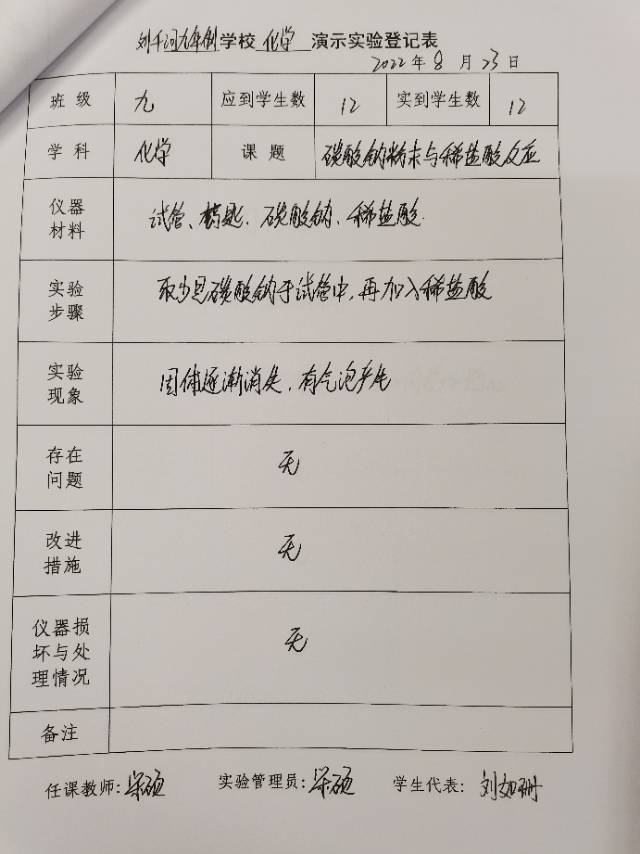 刘千河九年制学校 化学 演示实验登记表
2022年8月23日
班级 九 应到学生数 12 实到学生数 12
学科 化学 课题 碳酸钠粉末与稀盐酸反应
仪器材料 试管、药匙、碳酸钠、稀盐酸
实验步骤 取少量碳酸钠于试管中,再加入稀盐酸
实验现象 固体逐渐消失,有气泡产生
存在问题 无
改进措施 无
仪器损坏与处理情况 无
备注
任课教师:梁硕 实验管理员:梁硕 学生代表:刘如珊